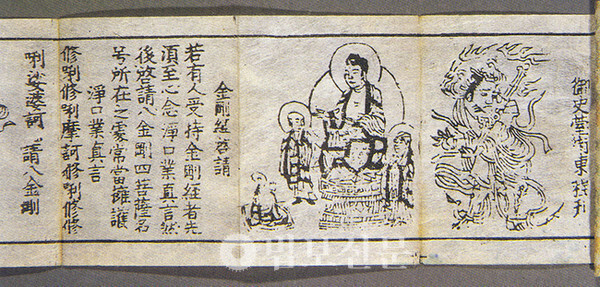 御史臺街東
金剛經啓請
若有人受持金剛經者先
須至心念淨口業真言然
後啓請八金剛四菩薩名
号所在之處常當擁護
淨口業真言
修唎修唎摩訶修唎修修
唎娑婆訶 請八金剛
법보신문